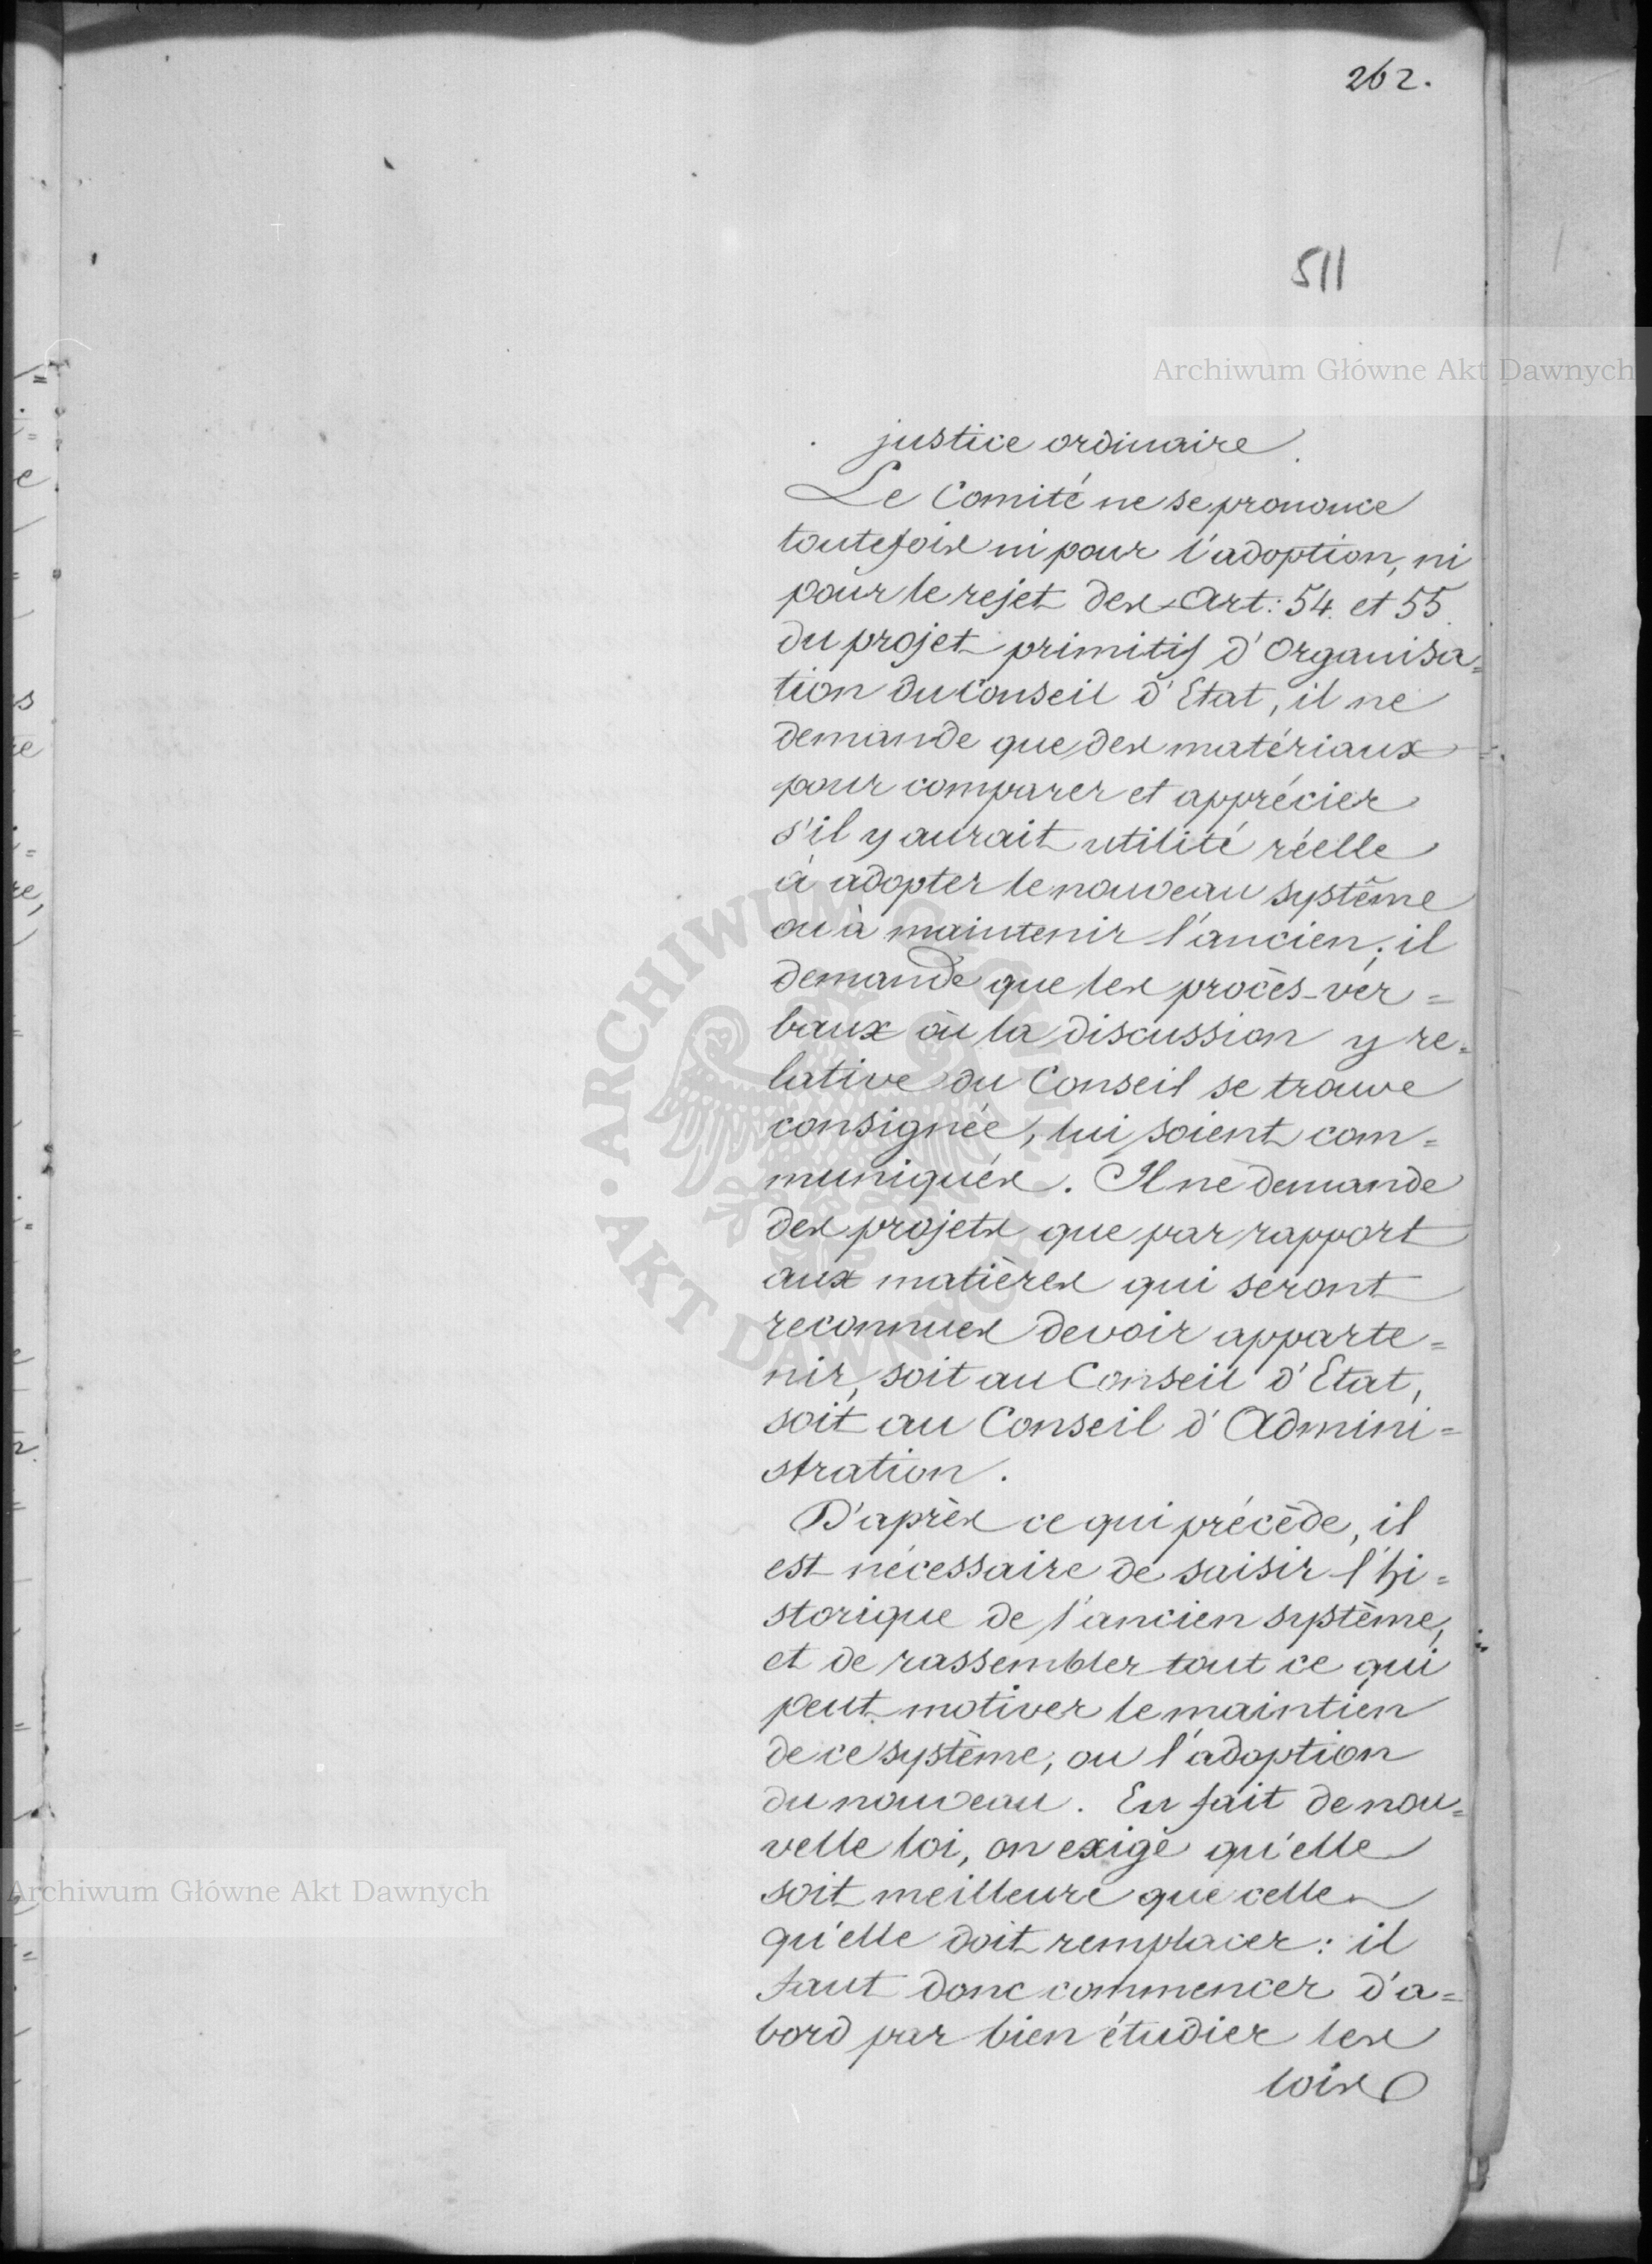 262.
511
Archiwum Główne Akt Dawnych
justice ordinaire.
Le Comité ne se prononce
toutefois ni pour l'adoption, ni
pour le rejet des Art: 54. et 55.
du projet primitif d'Organisa=
tion du Conseil d'Etat, il ne
demande que des matériaux
pour comparer et apprécier
s'il y aurait utilité réelle
à adopter le nouveau système
ou à maintenir l'ancien; il
demande que les procès-ver=
baux où la discussion y re=
lative du Conseil se trouve
consignée, lui soient com=
muniqués. Il ne demande
des projets que par rapport
aux matières qui seront
reconnues devoir apparte=
nir, soit au Conseil d'Etat,
soit au Conseil d'Admini=
stration.
D'après ce qui précède, il
est nécessaire de saisir l'hi=
storique de l'ancien système,
et de rassembler tout ce qui
peut motiver le maintien
de ce système, ou l'adoption
du nouveau. En fait de nou=
velle loi, on exige qu'elle
soit meilleure que celle
qu'elle doit remplacer: il
faut donc commencer d'a=
bord par bien étudier les
lois
ARCHIWUM GŁÓWNE
AKT DAWNYCH
Archiwum Główne Akt Dawnych